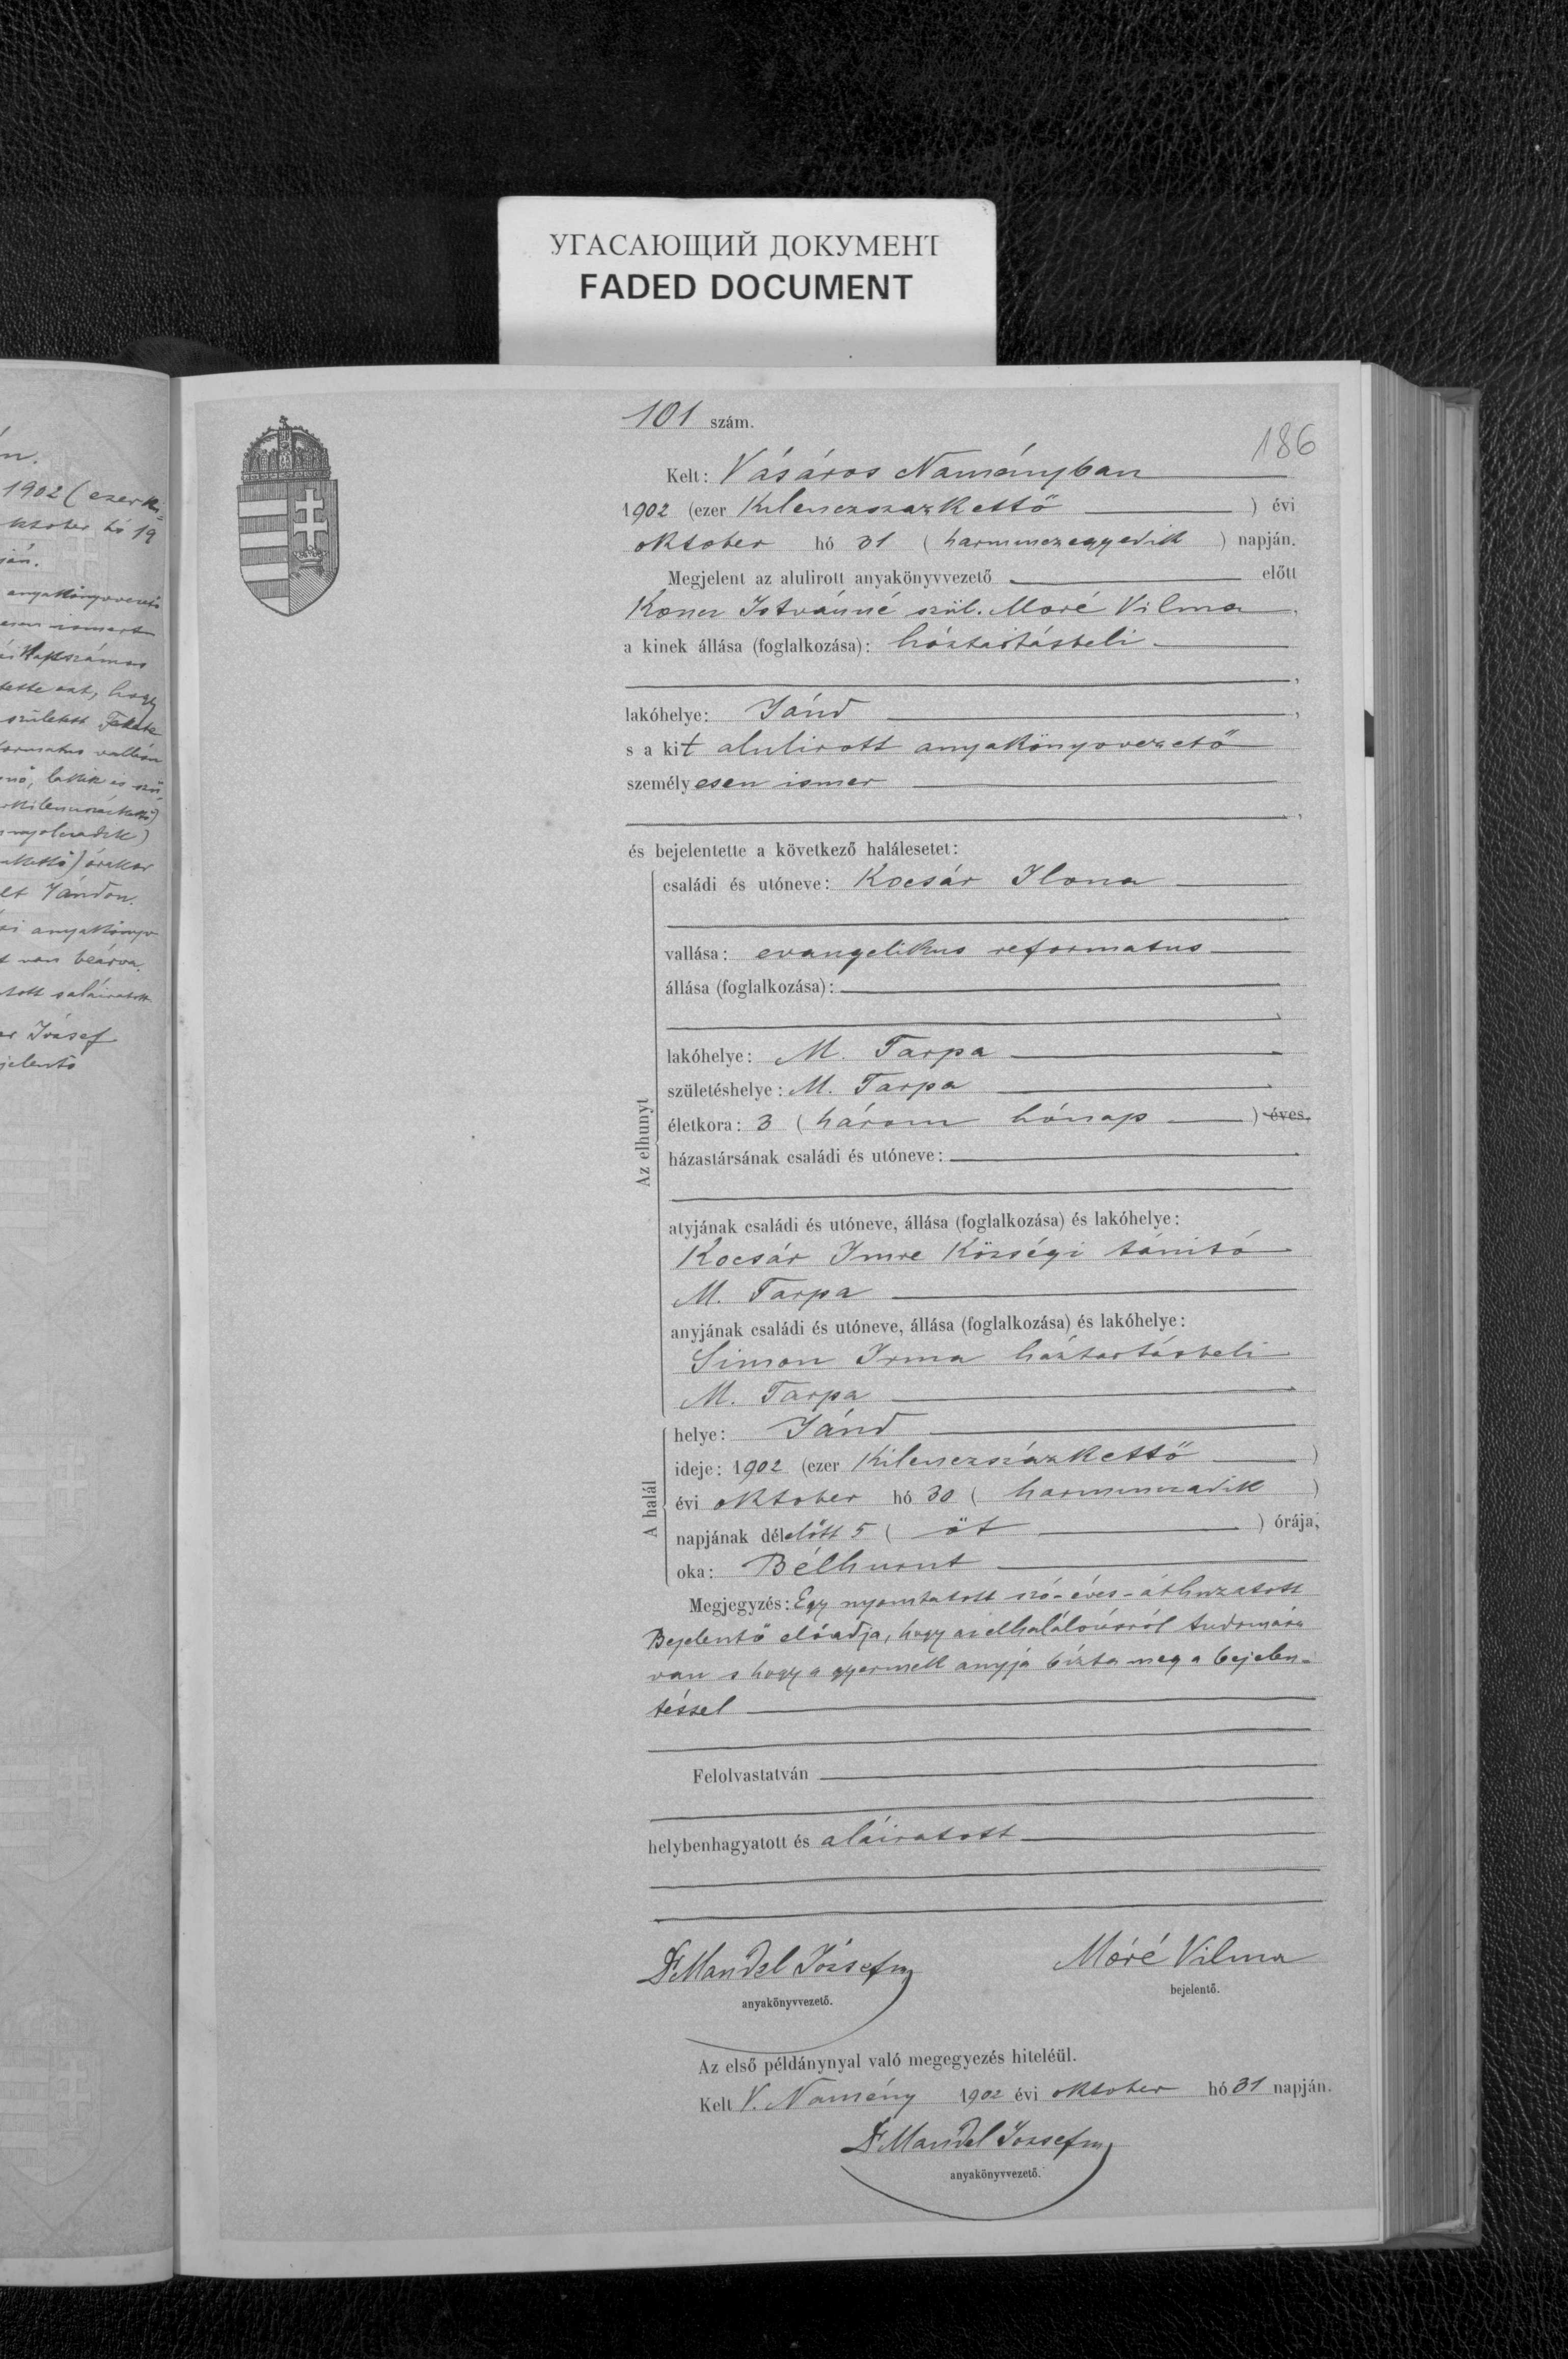 УГАСАЮЩИЙ ДОКУМЕНТ
FADED DOCUMENT
101 szám.
186
Kelt: Vásáros Naményban
1902 (ezer kilenczszázkettő ) évi
oktober hó 31 ( harminczegyedik ) napján.
Megjelent az alulirott anyakönyvvezető előtt
Koncz Istvánné szül. Moré Vilma,
a kinek állása (foglalkozása): háztartásbeli
lakóhelye: Jánd
s a kit alulirott anyakönyvvezető
személyesen ismer
és bejelentette a következő halálesetet:
Az elhunyt
családi és utóneve: Kocsár Ilona
vallása: evangelikus reformatus
állása (foglalkozása):
lakóhelye: M. Tarpa
születéshelye: M. Tarpa
életkora: 3 ( három hónap ) éves.
házastársának családi és utóneve:
atyjának családi és utóneve, állása (foglalkozása) és lakóhelye:
Kocsár Imre községi tánitó
M. Tarpa
anyjának családi és utóneve, állása (foglalkozása) és lakóhelye:
Simon Irma háztartásbeli
M. Tarpa
A halál
helye: Jánd
ideje: 1902 (ezer kilenczszázkettő )
évi oktober hó 30 ( harminczadik )
napjának délelőtt 5 ( öt ) órája,
oka: Bélhurut
Megjegyzés: Egy nyomtatott szó-éves-áthuzatott
Bejelentő előadja, hogy az elhalálozásról tudomása
van s hogy a gyermek anyja bizta meg a bejelen-
téssel
Felolvastatván
helybenhagyatott és aláiratott
Dr Mandel József
anyakönyvvezető.
Móré Vilma
bejelentő.
Az első példánynyal való megegyezés hiteléül.
Kelt V. Namény 1902 évi oktober hó 31 napján.
Dr Mandel József
anyakönyvvezető.
1902 (ezerki-
október hó 19
ján.
anyakönyvvezető
napszámos
tette azt, hogy
született Fekete
formatus vallású
nyolczadik)
órakor
Jándon.
anyakönyv
van beirva.
József
jelentő